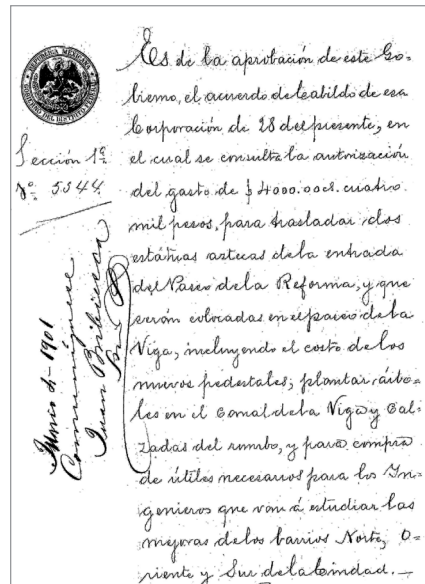 REPUBLICA MEXICANA
GOBIERNO DEL DISTRITO FEDERAL
Sección 1ª
Nº 5544
Junio 4-1901
Comuníquese
Juan Bribiesca
Srio
Es de la aprobación de este Go=
bierno, el acuerdo de Cabildo de esa
Corporación de 28 del presente, en
el cual se consulta la autorización
del gasto de $4000.00cs. cuatro
mil pesos, para trasladar dos
estátuas aztecas de la entrada
del Paseo de la Reforma, y que
serán colocadas en el paseo de la
Viga, incluyendo el costo de los
nuevos pedestales; plantar árbo=
les en il Canal de la Viga y Cal=
zadas del rumbo, y para compra
de útiles necesarios para los In=
genieros que van á estudiar las
mejoras de los barrios Norte, O=
riente y Sur de la Ciudad.—